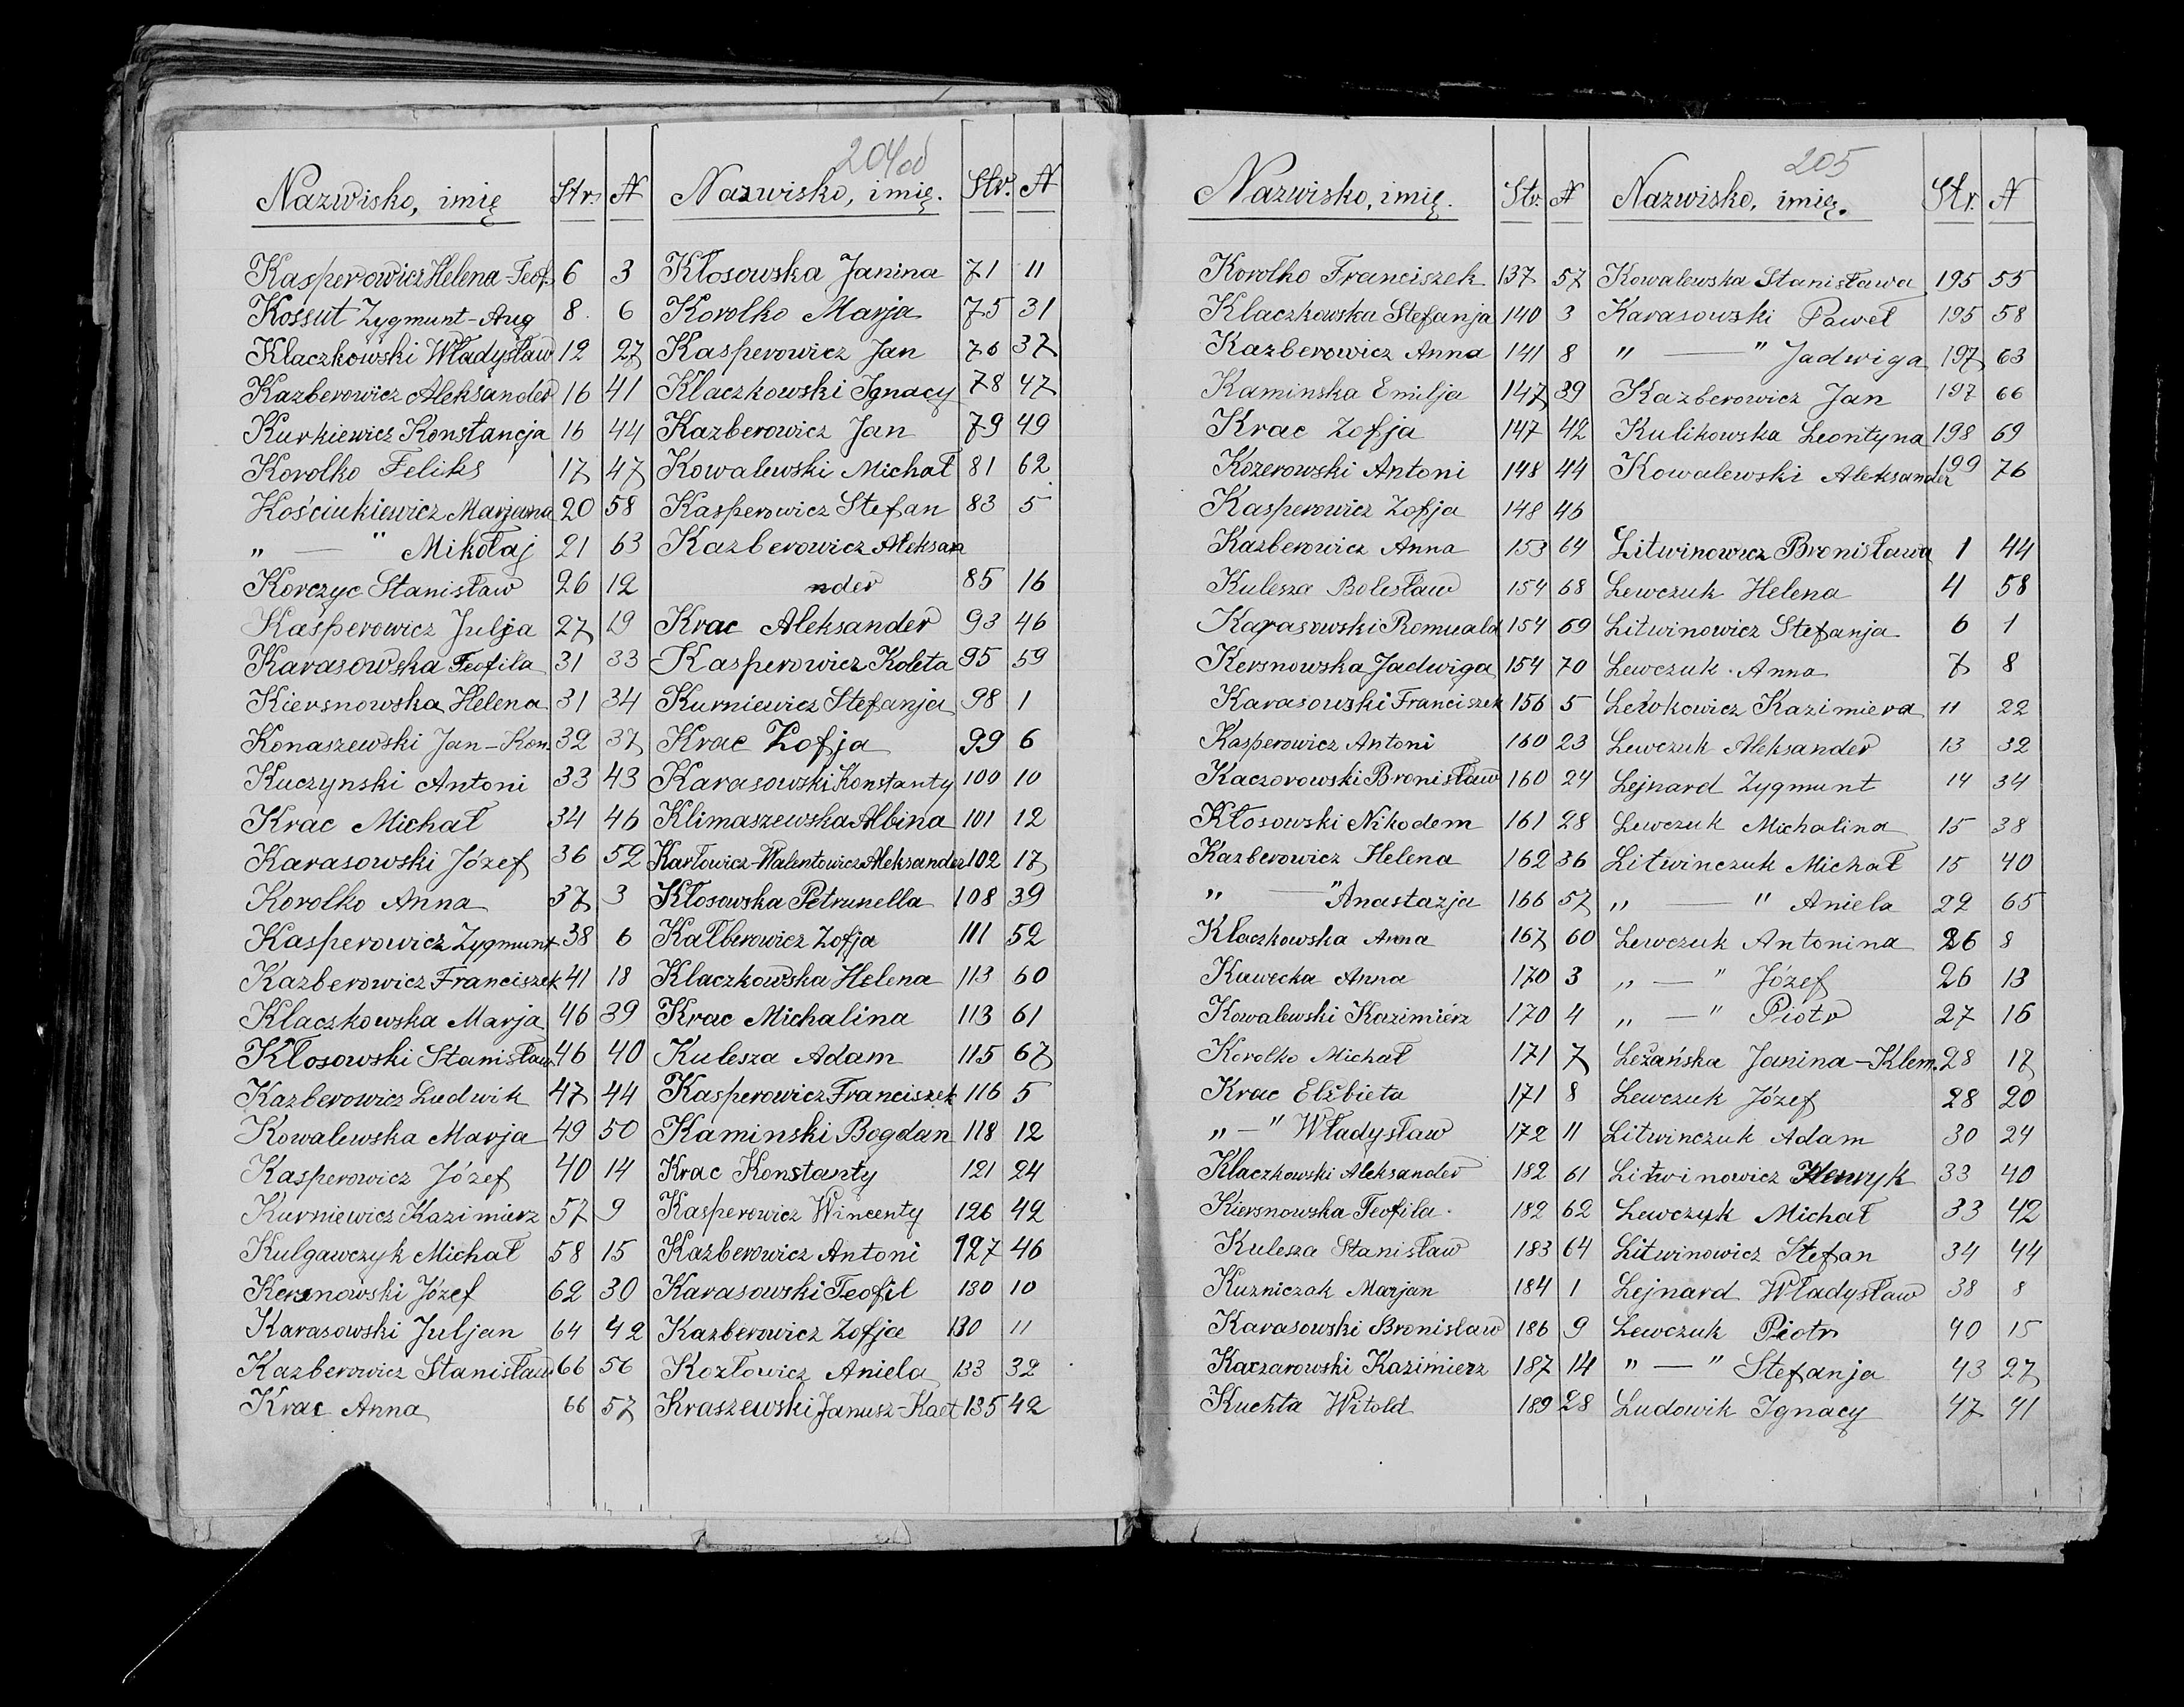 204 od
Nazwisko, imię Str. N
Kasperowicz Helena-Teof. 6 3
Kossut Zygmunt-Aug 8 6
Klaczkowski Władysław 12 27
Kazberowicz Aleksander 16 41
Kurkiewicz Konstancja 16 44
Korolko Feliks 17 47
Kościukiewicz Marjana 20 58
„ — " Mikołaj 21 63
Korczyc Stanisław 26 12
Kasperowicz Julja 27 19
Karasowska Teofila 31 33
Kiersnowska Helena 31 34
Konaszewski Jan-Kon. 32 37
Kuczynski Antoni 33 43
Krac Michał 34 46
Karasowski Józef 36 52
Korolko Anna 37 3
Kasperowicz Zygmunt 38 6
Kazberowicz Franciszek 41 18
Klaczkowska Marja 46 39
Kłosowski Stanisław 46 40
Kazberowicz Ludwik 47 44
Kowalewska Marja 49 50
Kasperowicz Józef 40 14
Kurniewicz Kazimierz 57 9
Kulgawczyk Michał 58 15
Kersnowski Józef 62 30
Karasowski Juljan 64 42
Kazberowicz Stanisław 66 56
Krac Anna 66 57
Nazwisko, imię. Str. N
Kłosowska Janina 71 11
Korolko Marja 75 31
Kasperowicz Jan 76 37
Klaczkowski Ignacy 78 47
Kazberowicz Jan 79 49
Kowalewski Michał 81 62
Kasperowicz Stefan 83 5
Kazberowicz Aleksan
nder 85 16
Krac Aleksander 93 46
Kasperowicz Koleta 95 59
Kurniewicz Stefanja 98 1
Krac Zofja 99 6
Karasowski Konstanty 100 10
Klimaszewska Albina 101 12
Karłowicz-Walentowicz Aleksander 102 17
Kłosowska Petrunella 108 39
Kalberowicz Zofja 111 52
Klaczkowska Helena 113 60
Krac Michalina 113 61
Kulesza Adam 115 67
Kasperowicz Franciszek 116 5
Kaminski Bogdan 118 12
Krac Konstanty 121 24
Kasperowicz Wincenty 126 42
Kazberowicz Antoni 127 46
Karasowski Teofil 130 10
Kazberowicz Zofja 130 11
Kozłowicz Aniela 133 32
Kraszewski Janusz-Kaet 135 42
205
Nazwisko, imię. Str. N
Korolko Franciszek 137 57
Klaczkowska Stefanja 140 3
Kazberowicz Anna 141 8
Kaminska Emilja 147 39
Krac Zofja 147 42
Kozerowski Antoni 148 44
Kasperowicz Zofja 148 46
Kazberowicz Anna 153 64
Kulesza Bolesław 154 68
Karasowski Romuald 154 69
Kersnowska Jadwiga 154 70
Karasowski Franciszek 156 5
Kasperowicz Antoni 160 23
Kaczorowski Bronisław 160 24
Kłosowski Nikodem 161 28
Kazberowicz Helena 162 36
„ — " Anastazja 166 57
Klaczkowska Anna 167 60
Kawecka Anna 170 3
Kowalewski Kazimierz 170 4
Korolko Michał 171 7
Krac Elżbieta 171 8
„ — " Władysław 172 11
Klaczkowski Aleksander 182 61
Kiersnowska Teofila 182 62
Kulesza Stanisław 183 64
Kuzniczak Marjan 184 1
Karasowski Bronisław 186 9
Kaczarowski Kazimierz 187 14
Kuchta Witold 189 28
Nazwisko, imię. Str. N
Kowalewska Stanisława 195 55
Karasowski Paweł 195 58
„ — " Jadwiga 197 63
Kazberowicz Jan 197 66
Kulikowska Leontyna 198 69
Kowalewski Aleksander 199 76
Litwinowicz Bronisława 1 44
Lewczuk Helena 4 58
Litwinowicz Stefanja 6 1
Lewczuk Anna 7 8
Lewkowicz Kazimiera 11 22
Lewczuk Aleksander 13 32
Lejnard Zygmunt 14 34
Lewczuk Michalina 15 38
Litwinczuk Michał 15 40
„ — " Aniela 22 65
Lewczuk Antonina 26 8
„ — " Józef 26 13
„ — " Piotr 27 16
Leżańska Janina-Klem. 28 17
Lewczuk Józef 28 20
Litwinczuk Adam 30 24
Litwinowicz Henryk 33 40
Lewczyk Michał 33 42
Litwinowicz Stefan 34 44
Lejnard Władysław 38 8
Lewczuk Piotr 40 15
„ — " Stefanja 43 27
Ludowik Ignacy 47 41